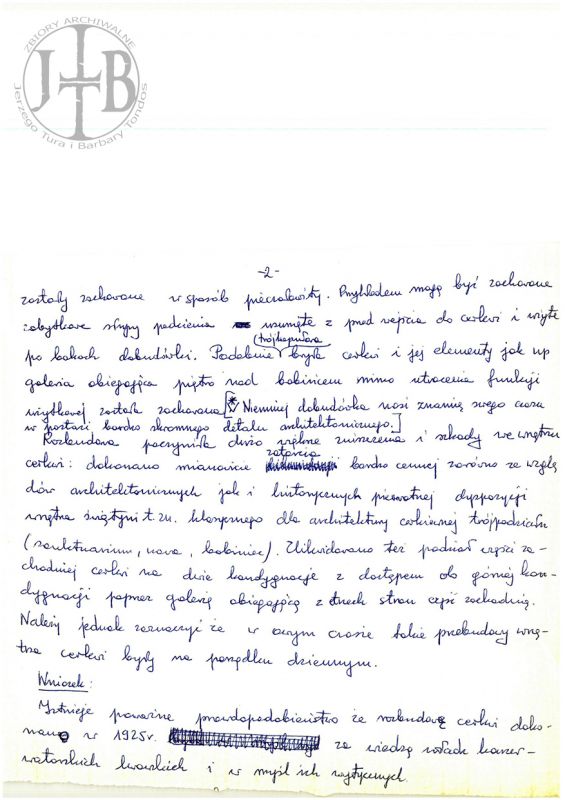 ZBIORY ARCHIWALNE
JTB
Jerzego Tura i Barbary Tondos
-2-
zostały zachowane w sposób pieczołowity. Przykładem mogą być zachowane
zabytkowe słupy podcienia usunięte z przed wejścia do cerkwi i użyte
po bokach dobudówki. Podobnie (trójkopułowa) bryła cerkwi i jej elementy jak np
galeria obiegająca piętro nad babińcem mimo utracenia funkcji
użytkowej została zachowana. [* Niemniej dobudówka nosi znamię swego czasu
w postaci bardzo skromnego detalu architektonicznego.]
Rozbudowa poczyniła duże zniszczenia i szkody we wnętrzu
cerkwi: dokonano mianowicie zatarcia bardzo cennej zarówno ze wzglę
dów architektonicznych jak i historycznych pierwotnej dyspozycji
wnętrza świątyni t. zn. klasycznego dla architektury cerkiewnej trójpodziału
(sanktuarium, nawa, babiniec). Zlikwidowano też podział części za-
chodniej cerkwi na dwie kondygnacje z dostępem do górnej kon-
dygnacji poprzez galerię obiegającą z trzech stron część zachodnią.
Należy jednak zaznaczyć że w owym czasie takie przebudowy wnę-
trza cerkwi były na porządku dziennym.
Wniosek:
Istnieje poważne prawdopodobieństwo że rozbudowę cerkwi doko-
nano w 1925r. za wiedzą władz konser-
watorskich lwowskich i w myśl ich wytycznych.